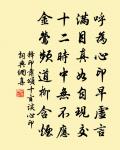 呼為心印早虛言
滿目真如自現
十二時中無不應
金鶯頻道柳含煙
釋印肅頌十玄談心印
詞典網